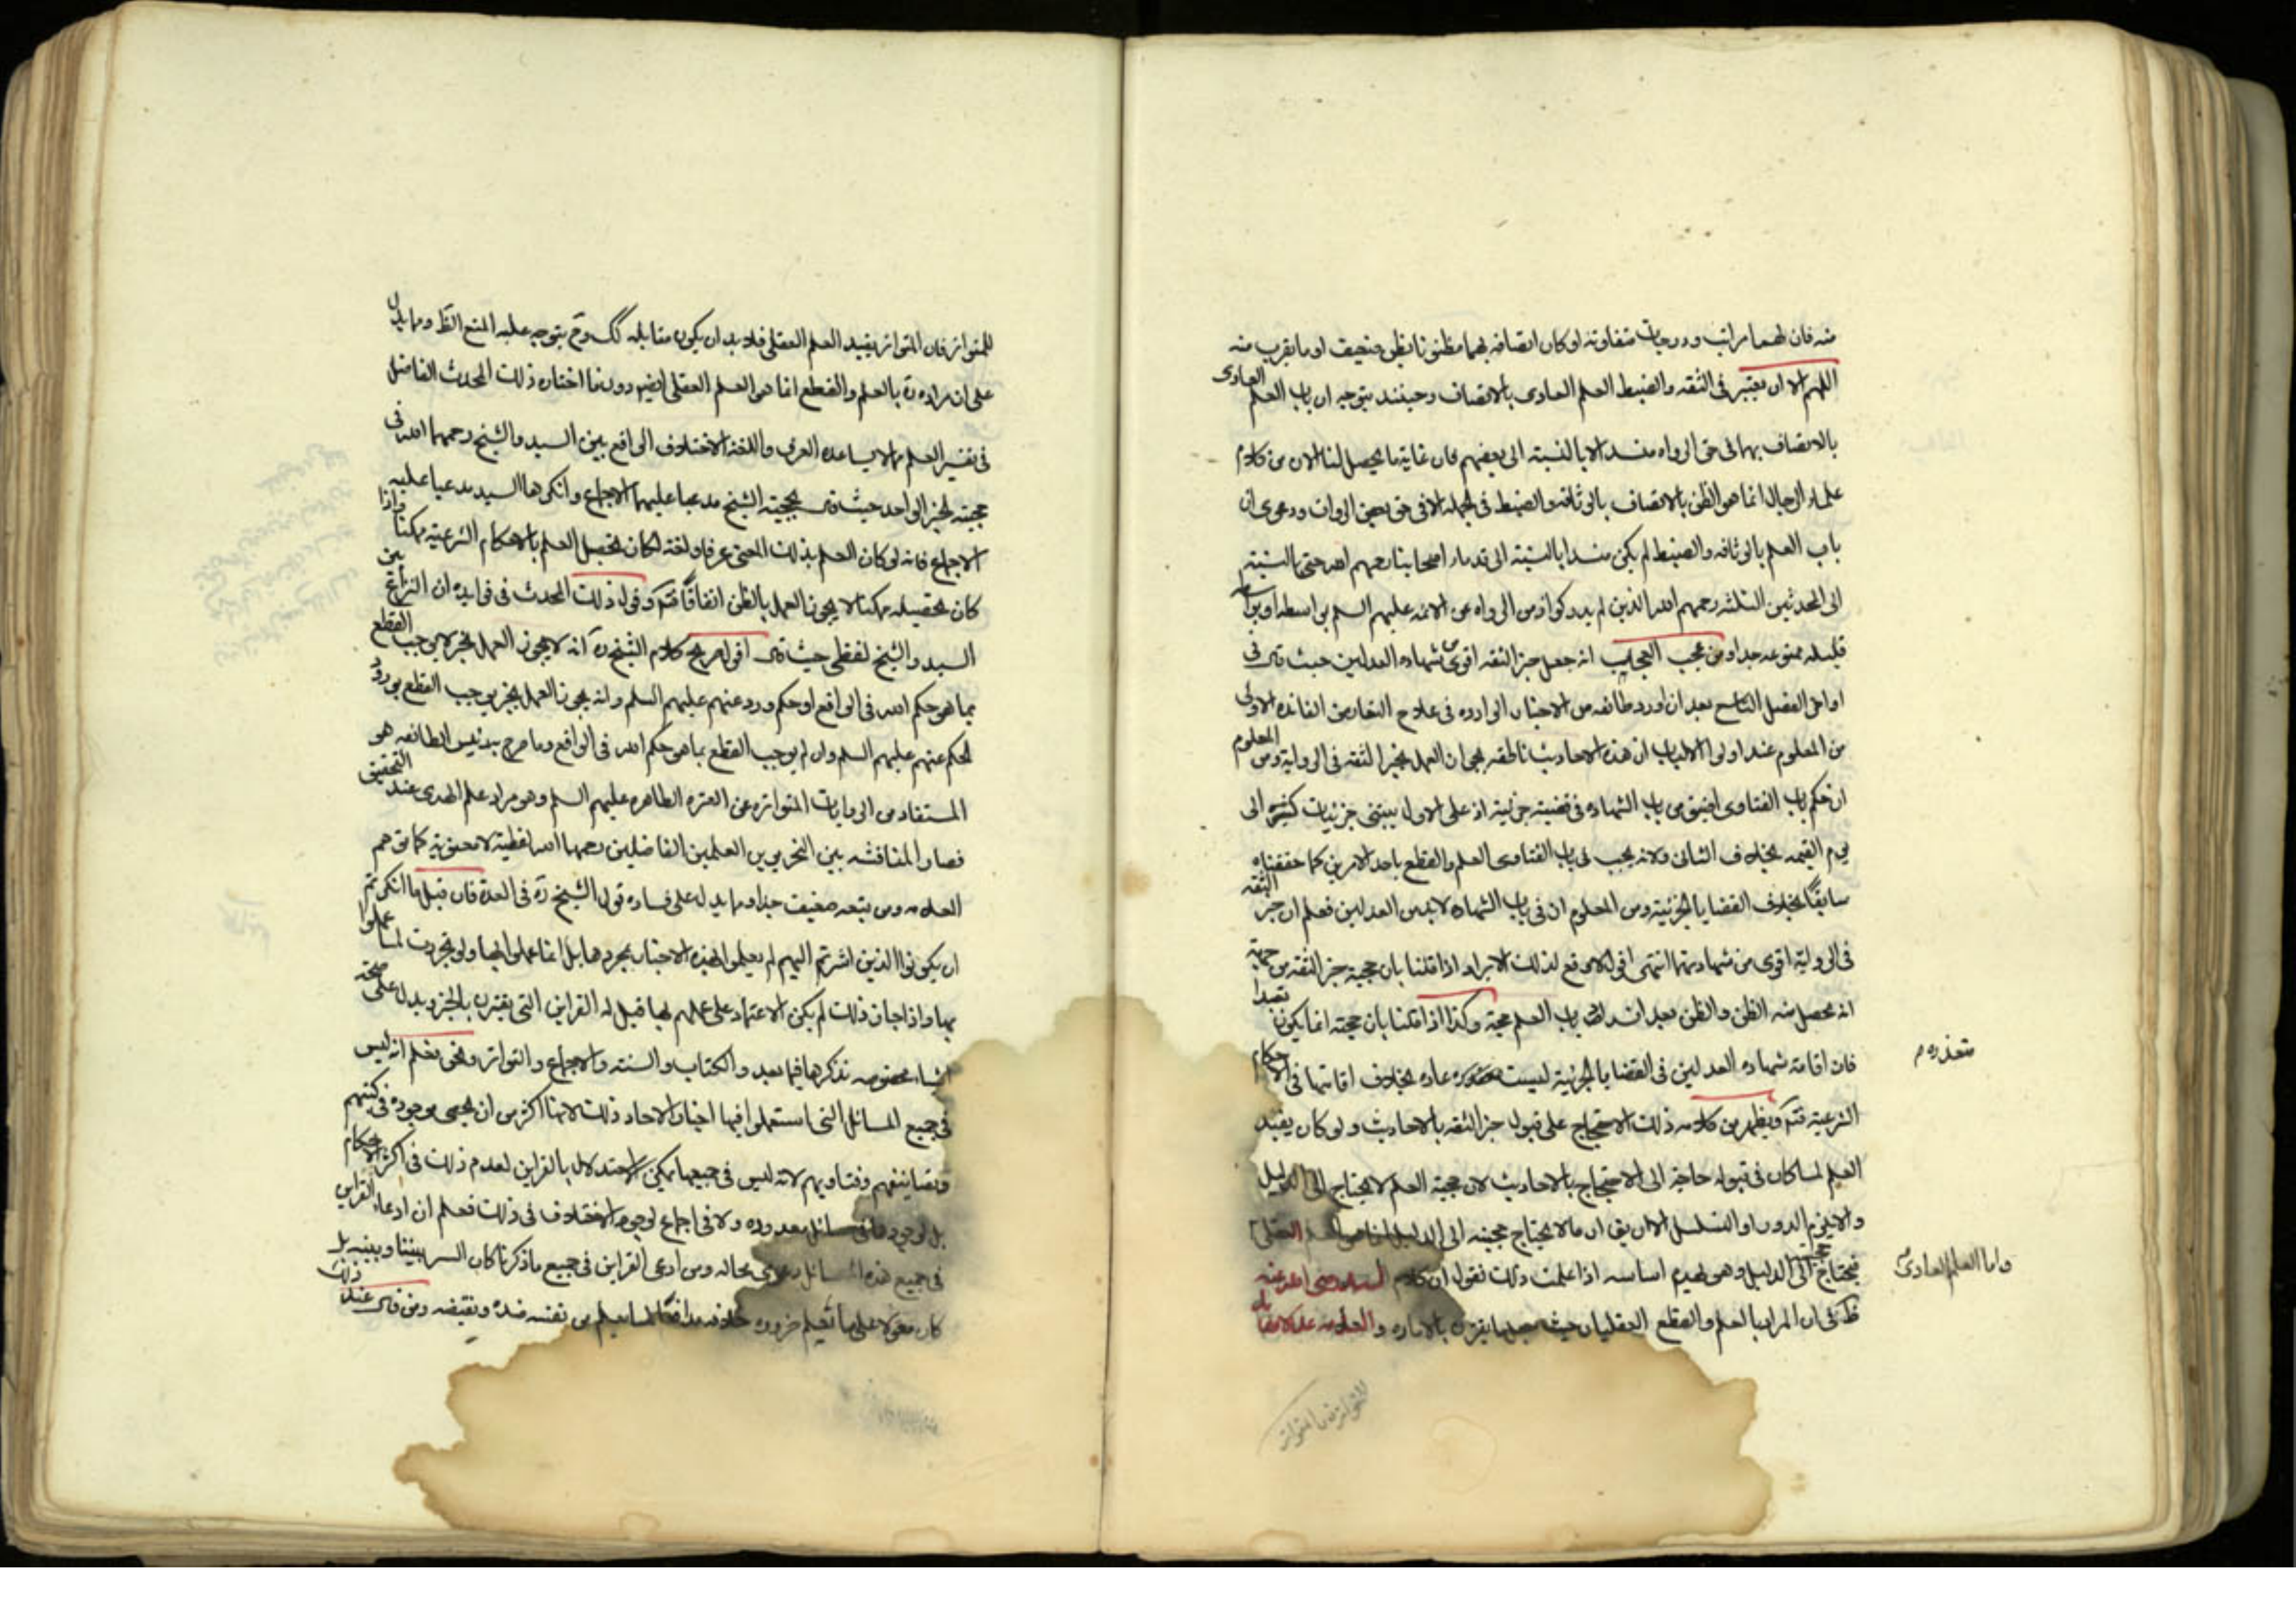 منه فان لهما مراتب ودرجات متفاوته لو كان اتصافه بهما مظنونا بظن ضعيف او ما يقرب منه
اللهم الا ان يعتبر فى الثقه والضبط العلم العادى بالاتصاف وحينئذ يتوجه ان باب العلم العادى
بالاتصاف بهما فى حق الرواه منسد الا بالنسبة الى بعضهم فان غاية ما يحصل لنا الان من كلام
علماء الرجال انما هو الظن بالاتصاف بالوثاقه والضبط فى الجمله الا فى حق بعض الروات ودعوى ان
باب العلم بالوثاقه والضبط لم يكن منسدا بالنسبة الى قدماء اصحابنا رحمهم الله حتى بالنسبة
الى المحدثين الثلثه رحمهم الله الذين لم يدركوا زمن الرواه عن الائمه عليهم السلم بواسطه او
قليله ممنوعه جدا ومن عجب العجايب انه جعل خبر الثقه اقوى من شهاده العدلين حيث قال فى
اوايل الفصل التاسع بعد ان اورد طائفه من الاخبار الوارده فى علاج التعارض الفائده الاولى
من المعلوم عند اولى الالباب ان هذه الاحاديث ناطقه بجواز العمل بخبر الثقه فى الرواية ومن المعلوم
ان حكم باب الفتاوى اضيق من باب الشهاده فى قضيته جزئية اذ على الاول يبتنى جزئيات كثيره الى
يوم القيمه بخلاف الثانى ولانه يجب فى باب الفتاوى العلم والقطع باحد الامرين كما حققناه
سابقا بخلاف القضايا الجزئية ومن المعلوم ان فى باب الشهاده لا بد من العدلين فعلم ان خبر الثقه
فى الرواية اقوى من شهادتهما انتهى اقول لا يدفع لذلك الايراد اذا قلنا بان حجية خبر الثقه من جهة
انه يحصل منه الظن والظن بعد انسداد باب العلم حجة وكذا اذا قلنا بان حجيته انما يكون تعبدا
فان اقامة شهاده العدلين فى القضايا الجزئية ليست متعذره عاده بخلاف اقامتها فى الاحكام
الشرعية فتم ويظهر من كلامه ذلك الاحتجاج على قبول خبر الثقه بالاحاديث ولو كان يفيد
العلم لما كان فى قبوله حاجة الى الاحتجاج بالاحاديث لان حجية العلم لا يحتاج الى الدليل
والا يلزم الدور او التسلسل الا ان يق ان ما لا يحتاج حجيته الى الدليل انما هو العلم العقلى
فيحتاج حجيته الى الدليل وهو لهدم اساسه اذا علمت ذلك نقول ان كلام السيد رضى الله عنه
فى ان المراد بالعلم والقطع العقليان حيث
متعذره م
واما العلم العادى
للمتواتر فان المتواتر
للمتواتر فان المتواتر يفيد العلم العقلى فلا بد ان يكون مقابله كك وح يتوجه عليه المنع الظ ومما يدل
على ان مراده ره بالعلم والقطع انما هو العلم العقلى ايضا دون ما اختاره ذلك المحدث الفاضل
فى تفسير العلم مما لا يساعده العرف واللغة الاختلاف الواقع بين السيد والشيخ رحمهما الله فى
حجية الخبر الواحد حيث قال بحجيته الشيخ مدعيا عليها الاجماع وانكرها السيد مدعيا عليه
الاجماع فانه لو كان العلم بذلك المعنى عرفا ولغة لكان تحصيل العلم بالاحكام الشرعية ممكنا واذا
كان تحصيله ممكنا لا يجوز العمل بالظن اتفاقا فتم وقول ذلك المحدث فى فوايده ان النزاع بين
السيد والشيخ لفظى حيث قال اقول صريح كلام الشيخ ره انه لا يجوز العمل بخبر لا يوجب القطع
بما هو حكم الله فى الواقع او حكم ورد عنهم عليهم السلم وانه يجوز العمل بخبر يوجب القطع بورود
الحكم عنهم عليهم السلم وان لم يوجب القطع بما هو حكم الله فى الواقع وما صرح به رئيس الطائفه هو
المستفاد من الروايات المتواتره عن العتره الطاهره عليهم السلم وهو مراد علم الهدى عند التحقيق
فصار المناقشه بين النحريرين العلمين الفاضلين رحمهما الله لفظية لا معنوية كما توهم
العلامه ومن تبعه ضعيف جدا ومما يدل على فساده قول الشيخ ره فى العدة فان قيل ما انكرتم
ان يكونوا الذين اشرتم اليهم لم يعملوا بهذه الاخبار بمجردها بل انما عملوا بها ولو تجردت لما عملوا
بها واذا جاز ذلك لم يكن الاعتماد على عملهم بها قيل له القراين التى يقترن بالخبر ويدل على صحته
اشياء مخصوصه نذكرها فيما بعد والكتاب والسنة والاجماع والتواتر ونحن نعلم انه ليس
فى جميع المسائل التى استعملوا فيها اخبار الاحاد ذلك لانها اكثر من ان يحصى موجوده فى كتبهم
وتصانيفهم وفتاويهم لانه ليس فى جميعها يمكن الاستدلال بالقراين لعدم ذلك فى اكثر الاحكام
بل لوجود فى مسائل معدوده ولا فى اجماع لوجود الاختلاف فى ذلك فعلم ان ادعاء القراين
فى جميع هذه المسائل دعوى محاله ومن ادعى القراين فى جميع ما ذكرنا كان السبر بيننا وبينه بل
كان معولا على ما نعلم ضروره خلافه مدافعا لما يعلم من نفسه ضده ونقيضه ومن قال عند ذلك